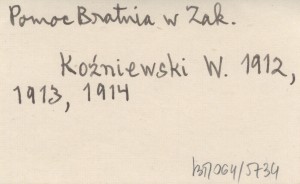 Pomoc Bratnia w Zak.
Koźniewski W. 1912,
1913, 1914
BT/064/5734